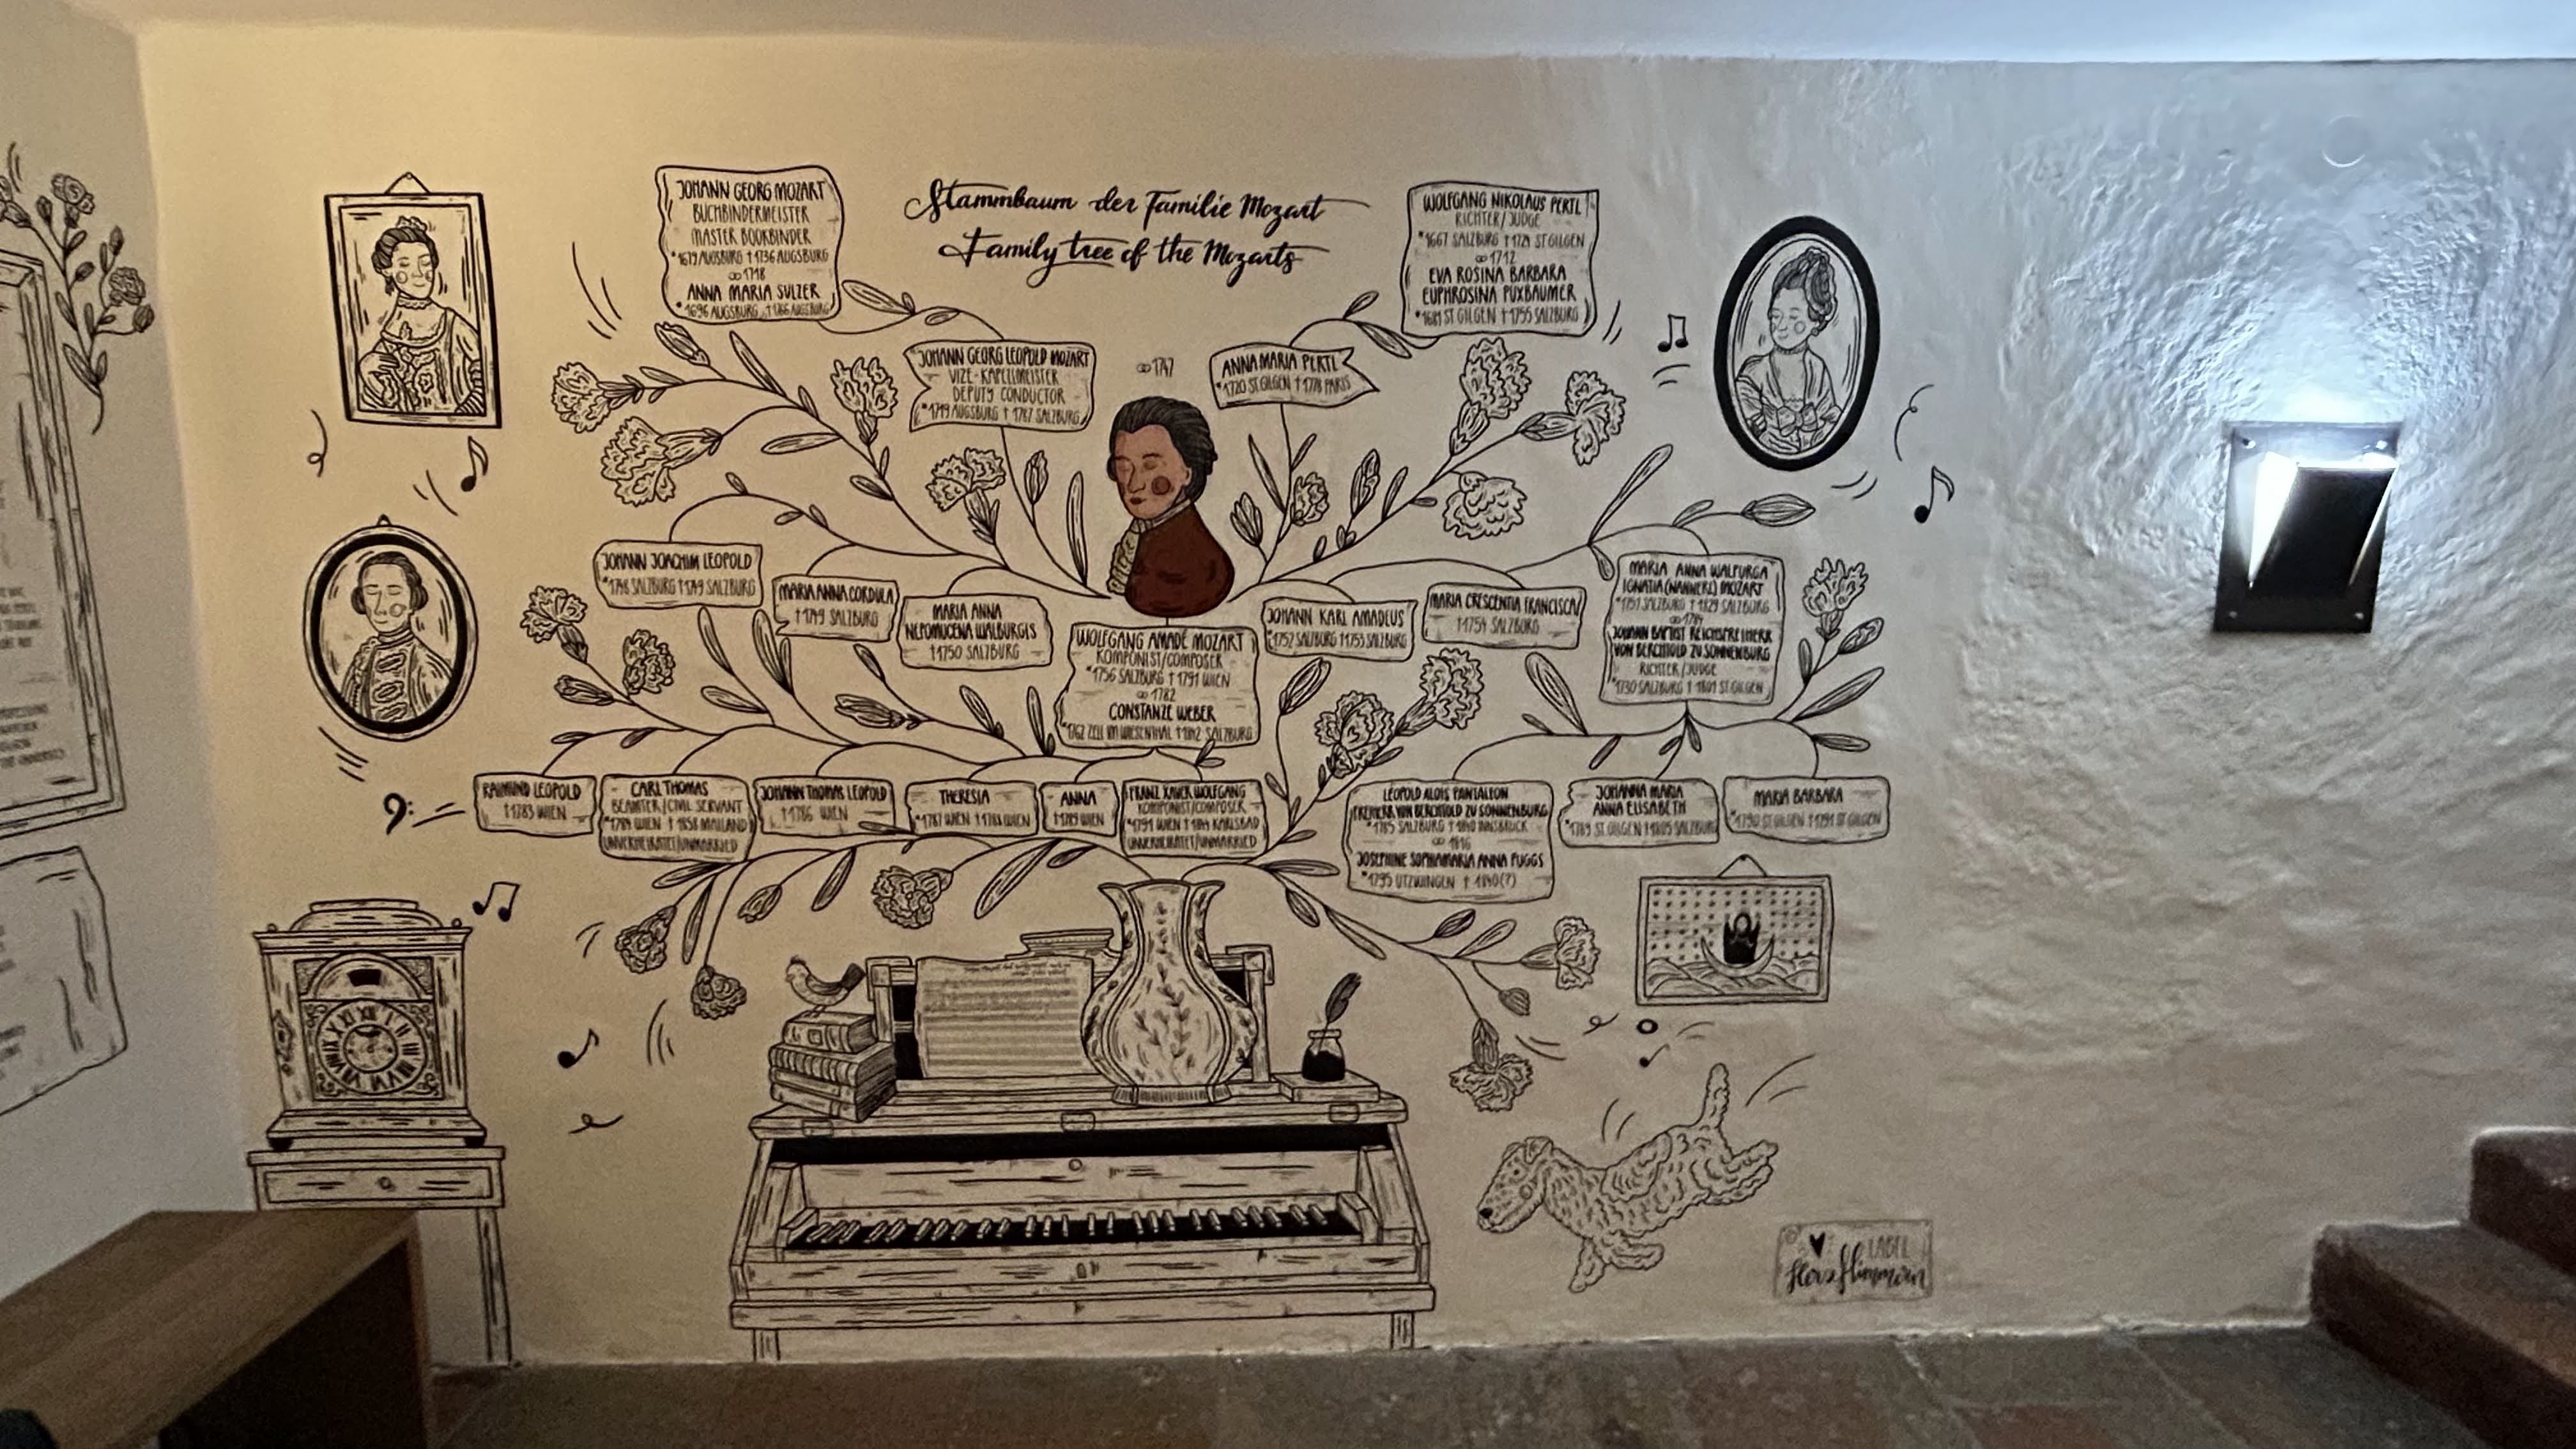 Stammbaum der Familie Mozart
Family tree of the Mozarts
JOHANN GEORG MOZART
BUCHBINDERMEISTER
MASTER BOOKBINDER
*1679 AUGSBURG †1736 AUGSBURG
⚭1718
ANNA MARIA SULZER
*1696 AUGSBURG †1766 AUGSBURG
WOLFGANG NIKOLAUS PERTL
RICHTER/JUDGE
*1667 SALZBURG †1724 ST.GILGEN
⚭1712
EVA ROSINA BARBARA
EUPHROSINA PUXBAUMER
*1681 ST.GILGEN †1755 SALZBURG
JOHANN GEORG LEOPOLD MOZART
VIZE-KAPELLMEISTER
DEPUTY CONDUCTOR
*1719 AUGSBURG †1787 SALZBURG
⚭1747
ANNA MARIA PERTL
*1720 ST.GILGEN †1778 PARIS
JOHANN JOACHIM LEOPOLD
*1748 SALZBURG †1749 SALZBURG
MARIA ANNA CORDULA
†1749 SALZBURG
MARIA ANNA
NEPOMUCENA WALBURGIS
†1750 SALZBURG
WOLFGANG AMADÉ MOZART
KOMPONIST/COMPOSER
*1756 SALZBURG †1791 WIEN
⚭1782
CONSTANZE WEBER
*1762 ZELL IM WIESENTHAL †1842 SALZBURG
JOHANN KARL AMADEUS
*1752 SALZBURG †1753 SALZBURG
MARIA CRESCENTIA FRANCISCA
†1754 SALZBURG
MARIA ANNA WALPURGA
IGNATIA (NANNERL) MOZART
*1751 SALZBURG †1829 SALZBURG
⚭1784
JOHANN BAPTIST REICHSFREIHERR
VON BERCHTOLD ZU SONNENBURG
RICHTER/JUDGE
*1730 SALZBURG †1801 ST.GILGEN
RAIMUND LEOPOLD
†1783 WIEN
CARL THOMAS
BEAMTER/CIVIL SERVANT
*1784 WIEN †1858 MAILAND
UNVERHEIRATET/UNMARRIED
JOHANN THOMAS LEOPOLD
†1786 WIEN
THERESIA
*1787 WIEN †1788 WIEN
ANNA
†1789 WIEN
FRANZ XAVER WOLFGANG
KOMPONIST/COMPOSER
*1791 WIEN †1844 KARLSBAD
UNVERHEIRATET/UNMARRIED
LEOPOLD ALOIS PANTALEON
FREIHERR VON BERCHTOLD ZU SONNENBURG
*1785 SALZBURG †1840 INNSBRUCK
⚭1816
JOSEPHINE SOPHIAMARIA ANNA FUGGS
*1795 UTZWINGEN †1840(?)
JOHANNA MARIA
ANNA ELISABETH
*1789 ST.GILGEN †1805 SALZBURG
MARIA BARBARA
*1790 ST.GILGEN †1791 ST.GILGEN
LABEL
Herzflimmern